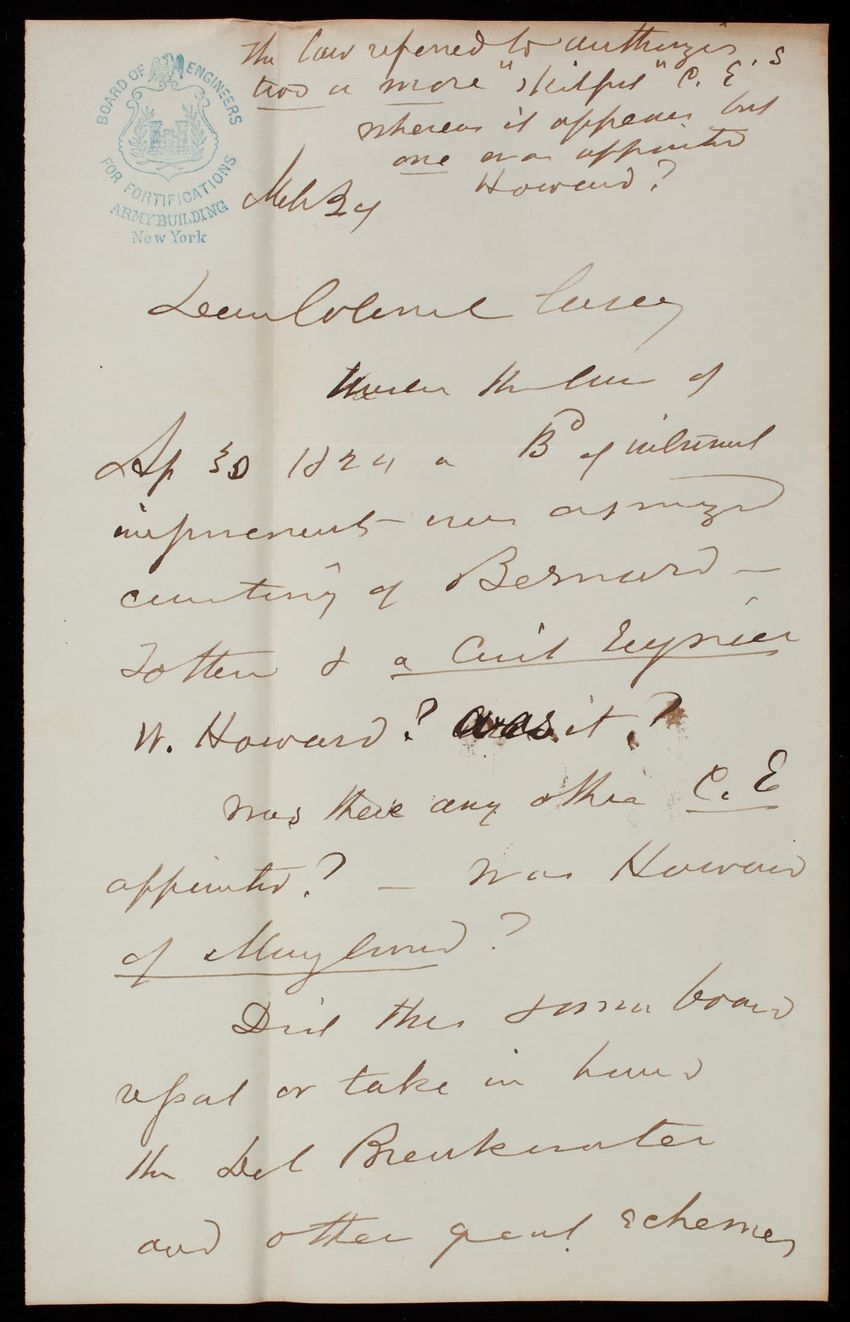 BOARD OF ENGINEERS
FOR FORTIFICATIONS
ARMY BUILDING
New York
The law referred to authorizes
two or more "skilful" C. E's
whereas it appears but
one was appointed
Howard?
Dear Colonel Casey
Under the law of
Ap 30 1824 a Bd of internal
improvements was organized
consisting of Bernard -
Totten & a Civil Engineer
W. Howard? was it?
Was there any other C. E
appointed? - Was Howard
of Maryland?
Did this same board
report or take in hand
the Del Breakwater
and other great schemes